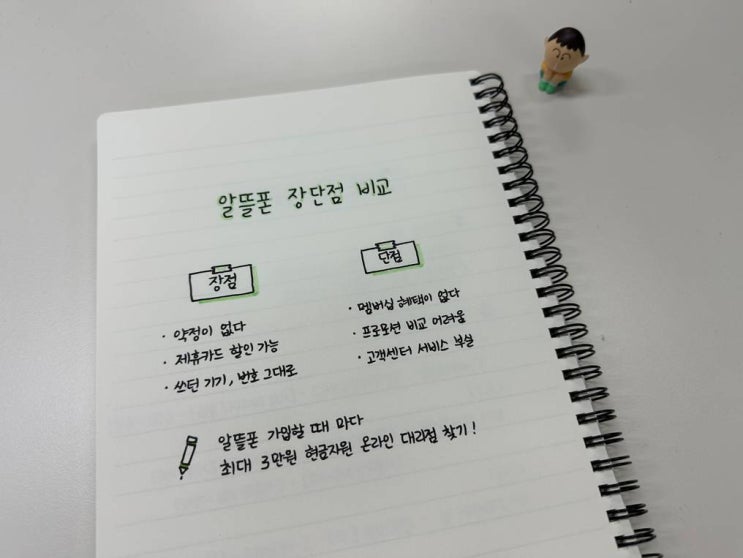 알뜰폰 장단점 비교
장점
· 약정이 없다
· 제휴카드 할인 가능
· 쓰던 기기, 번호 그대로
단점
· 멤버십 혜택이 없다
· 프로모션 비교 어려움
· 고객센터 서비스 부실
알뜰폰 가입할 때 마다
최대 3만원 현금지원 온라인 대리점 찾기!